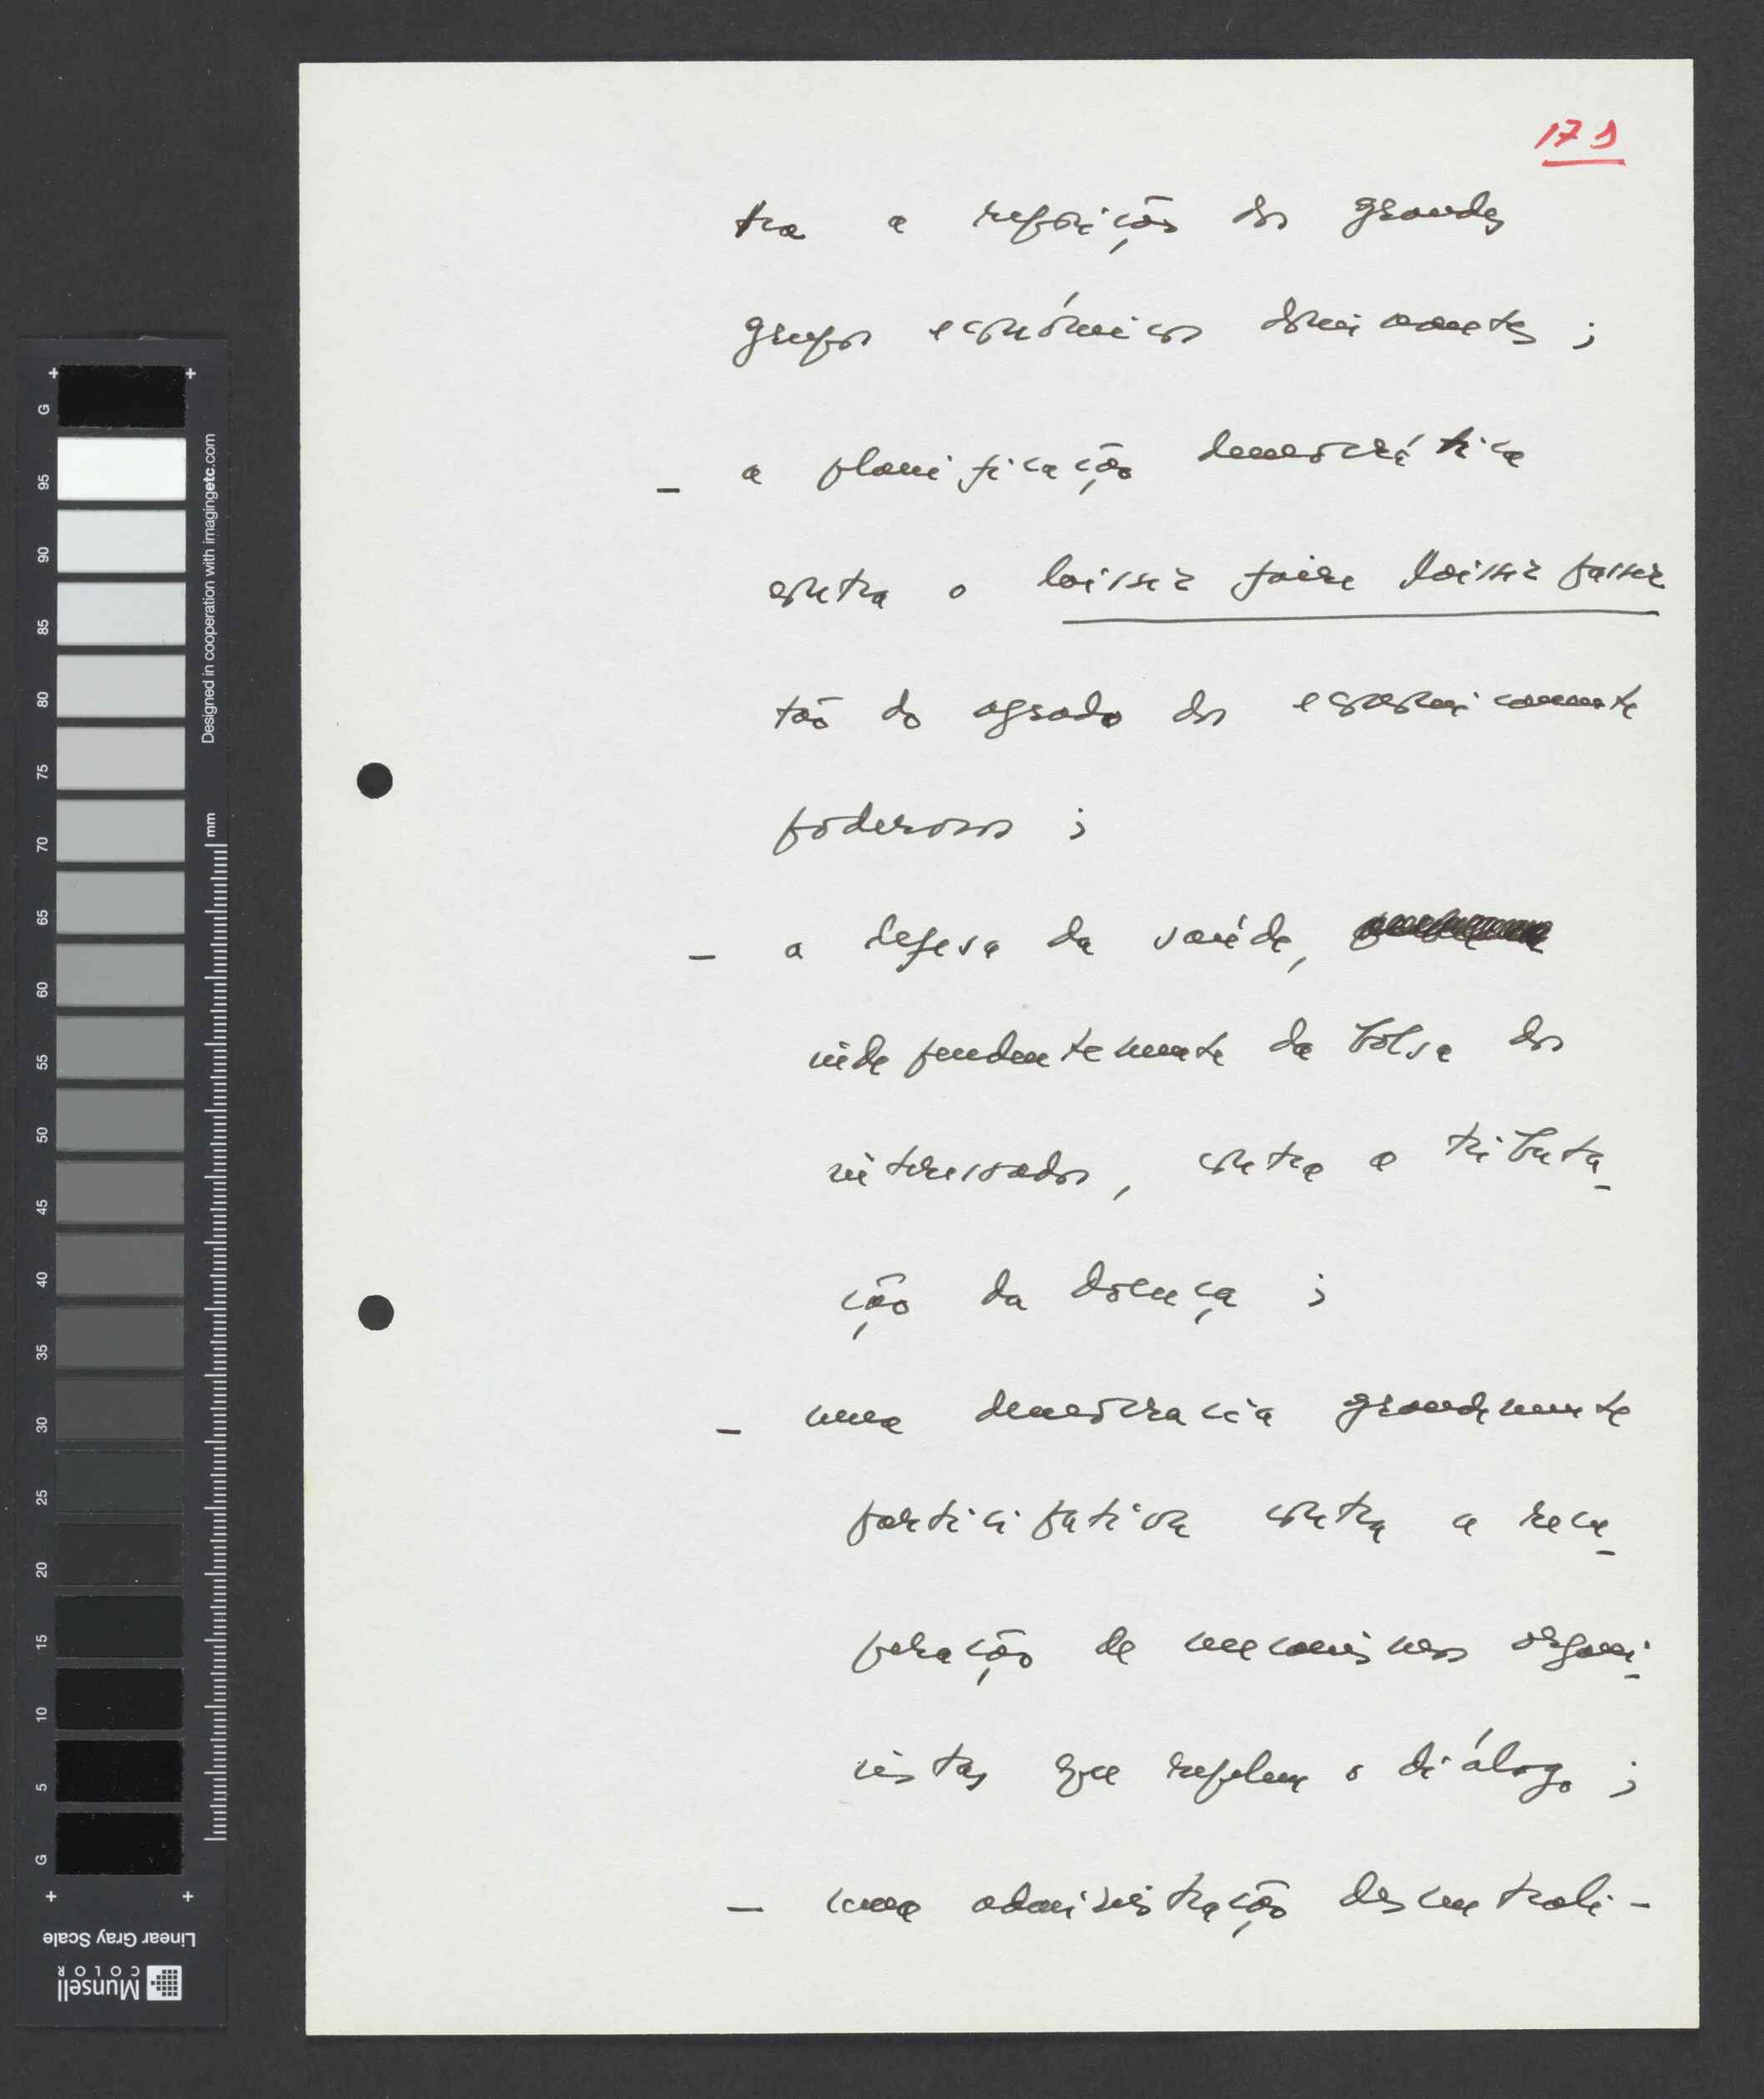 179
tra a reposição dos grandes
grupos económicos dominantes ;
— a planificação democrática
contra o laisser faire laisser passer
tão do agrado dos economicamente
poderosos ;
— a defesa da saúde,
independentemente da bolsa dos
interessados, contra a tributa-
ção da doença ;
— uma democracia grandemente
participativa contra a recu-
peração de mecanismos organi-
cistas que repelem o diálogo ;
— uma administração descentrali-
Designed in cooperation with imagingetc.com
mm
G 95 90 85 80 75 70 65 60 55 50 45 40 35 30 25 20 15 10 5 G
Linear Gray Scale
Munsell
COLOR